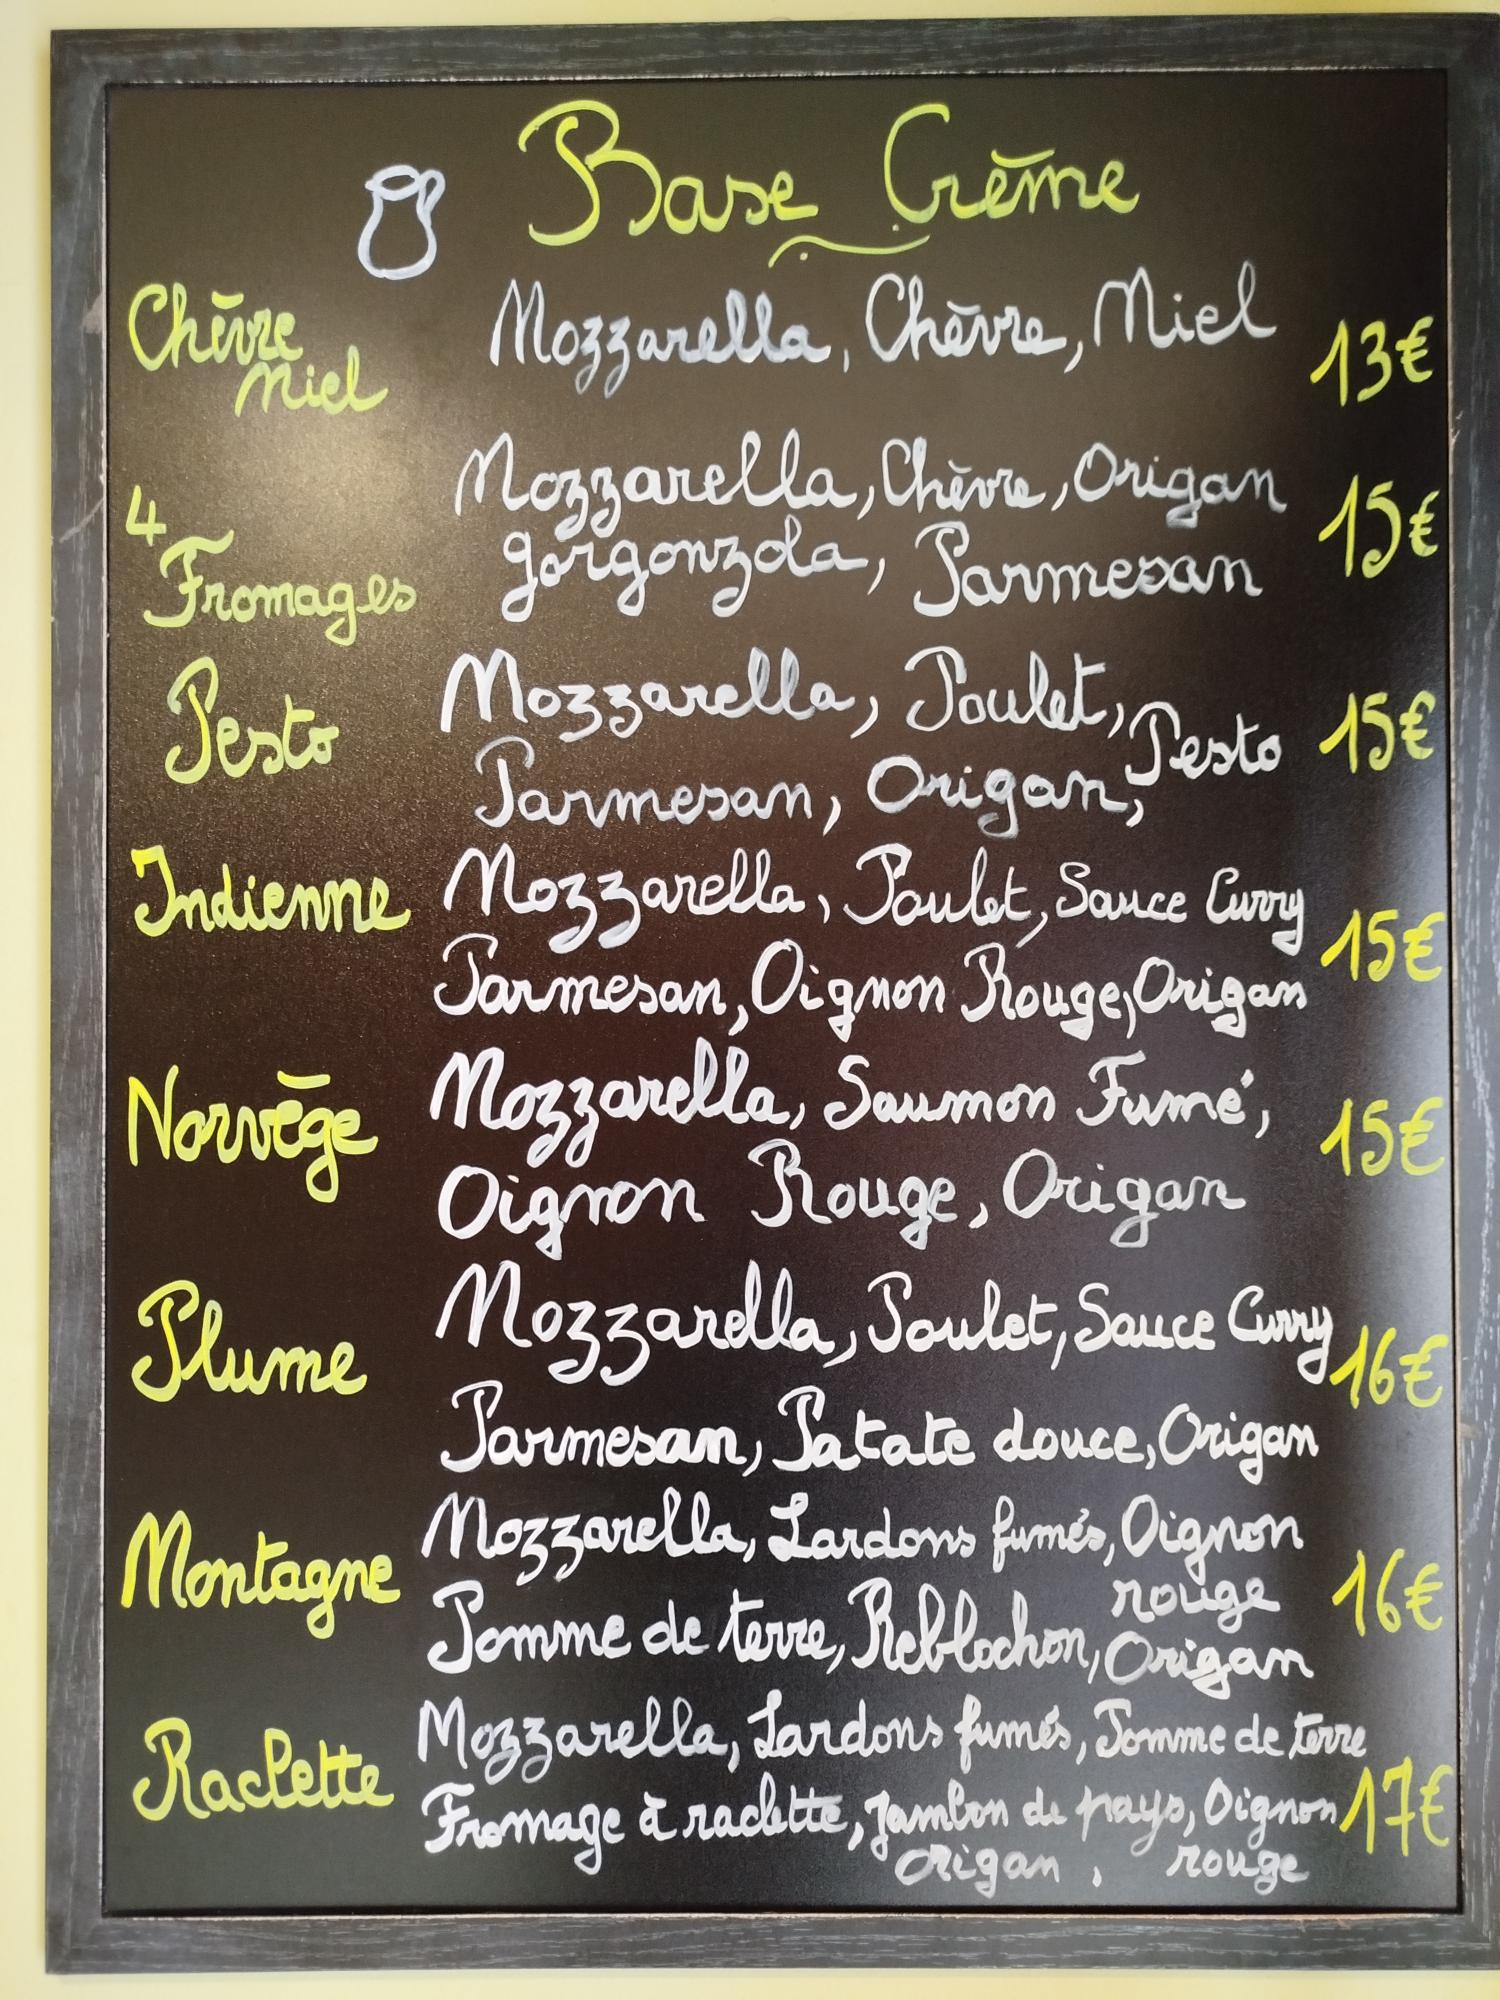 Base Crème
Chèvre
Miel
Mozzarella, Chèvre, Miel
13€
4
Fromages
Mozzarella, Chèvre, Origan
gorgonzola, Parmesan
15€
Pesto
Mozzarella, Poulet,
Parmesan, Origan, Pesto
15€
Indienne
Mozzarella, Poulet, Sauce Curry
Parmesan, Oignon Rouge, Origan
15€
Norvège
Mozzarella, Saumon Fumé,
Oignon Rouge, Origan
15€
Plume
Mozzarella, Poulet, Sauce Curry
Parmesan, Patate douce, Origan
16€
Montagne
Mozzarella, Lardons fumés, Oignon
rouge
Pomme de terre, Reblochon, Origan
16€
Raclette
Mozzarella, Lardons fumés, Pomme de terre
Fromage à raclette, jambon de pays, Oignon
origan, rouge
17€